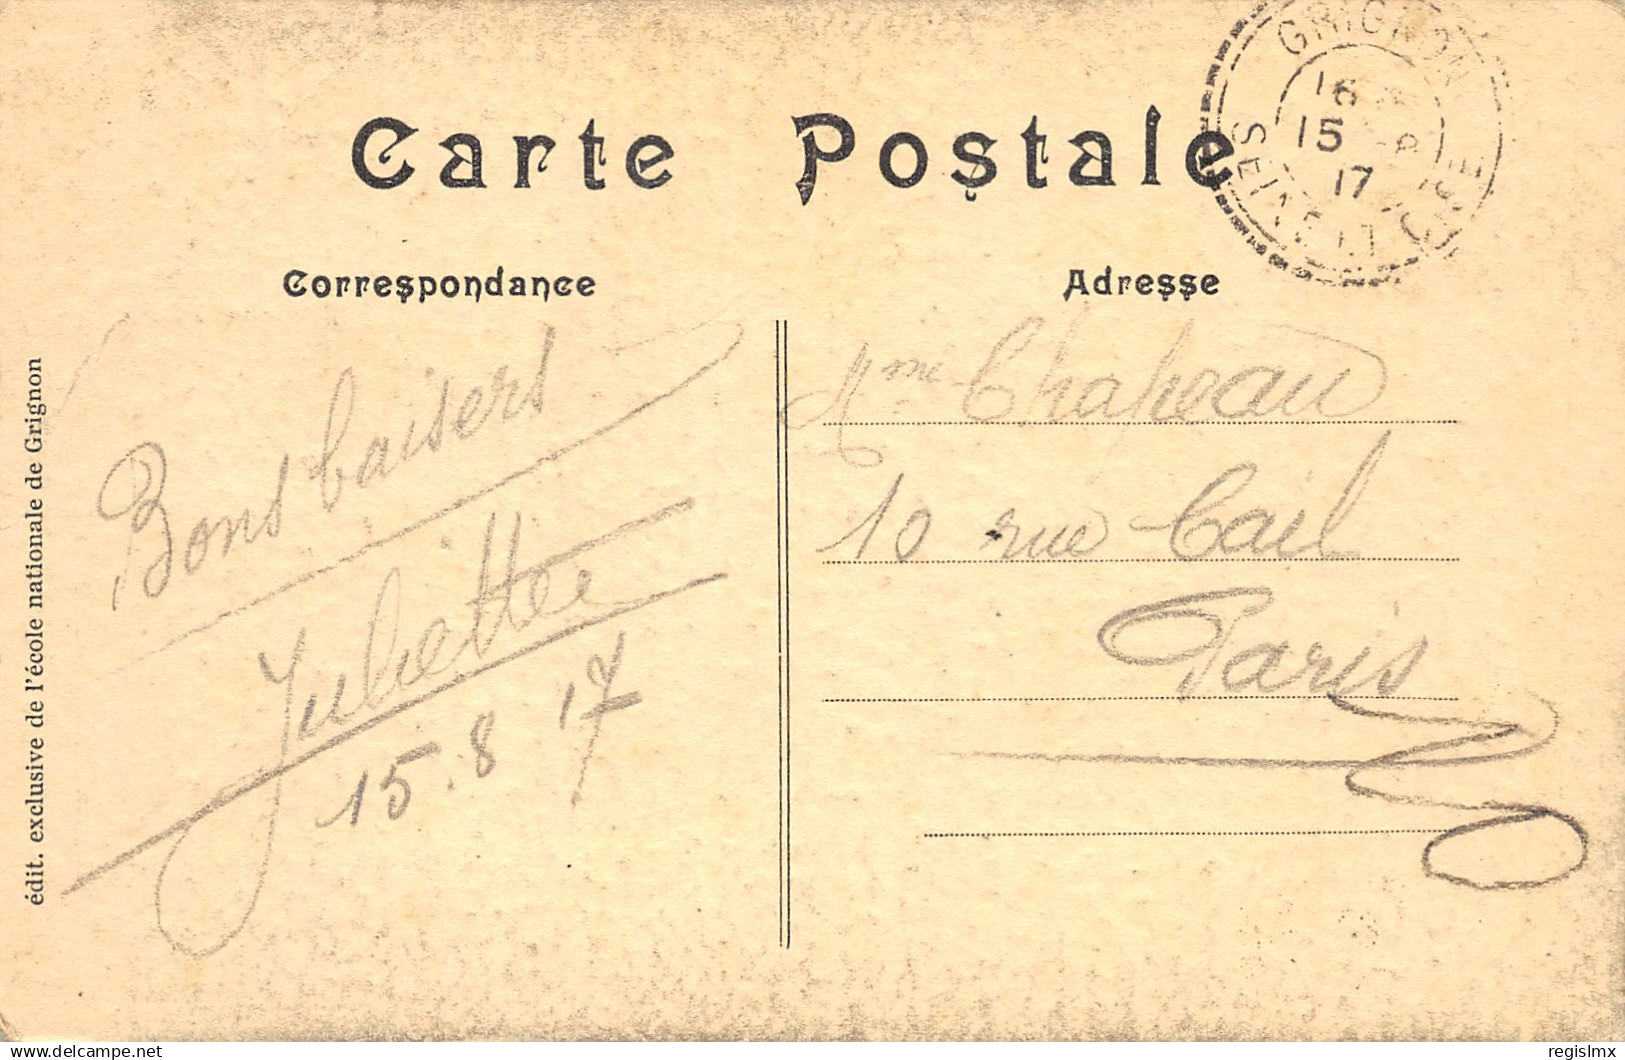 Carte Postale
GRIGNON
16
15 8
17
SEINE-ET-OISE
Correspondance
Adresse
Bons baisers
Juliette
15.8 17
Mme Chapeau
10 rue Cail
Paris
édit. exclusive de l'école nationale de Grignon
delcampe.net
regislmx